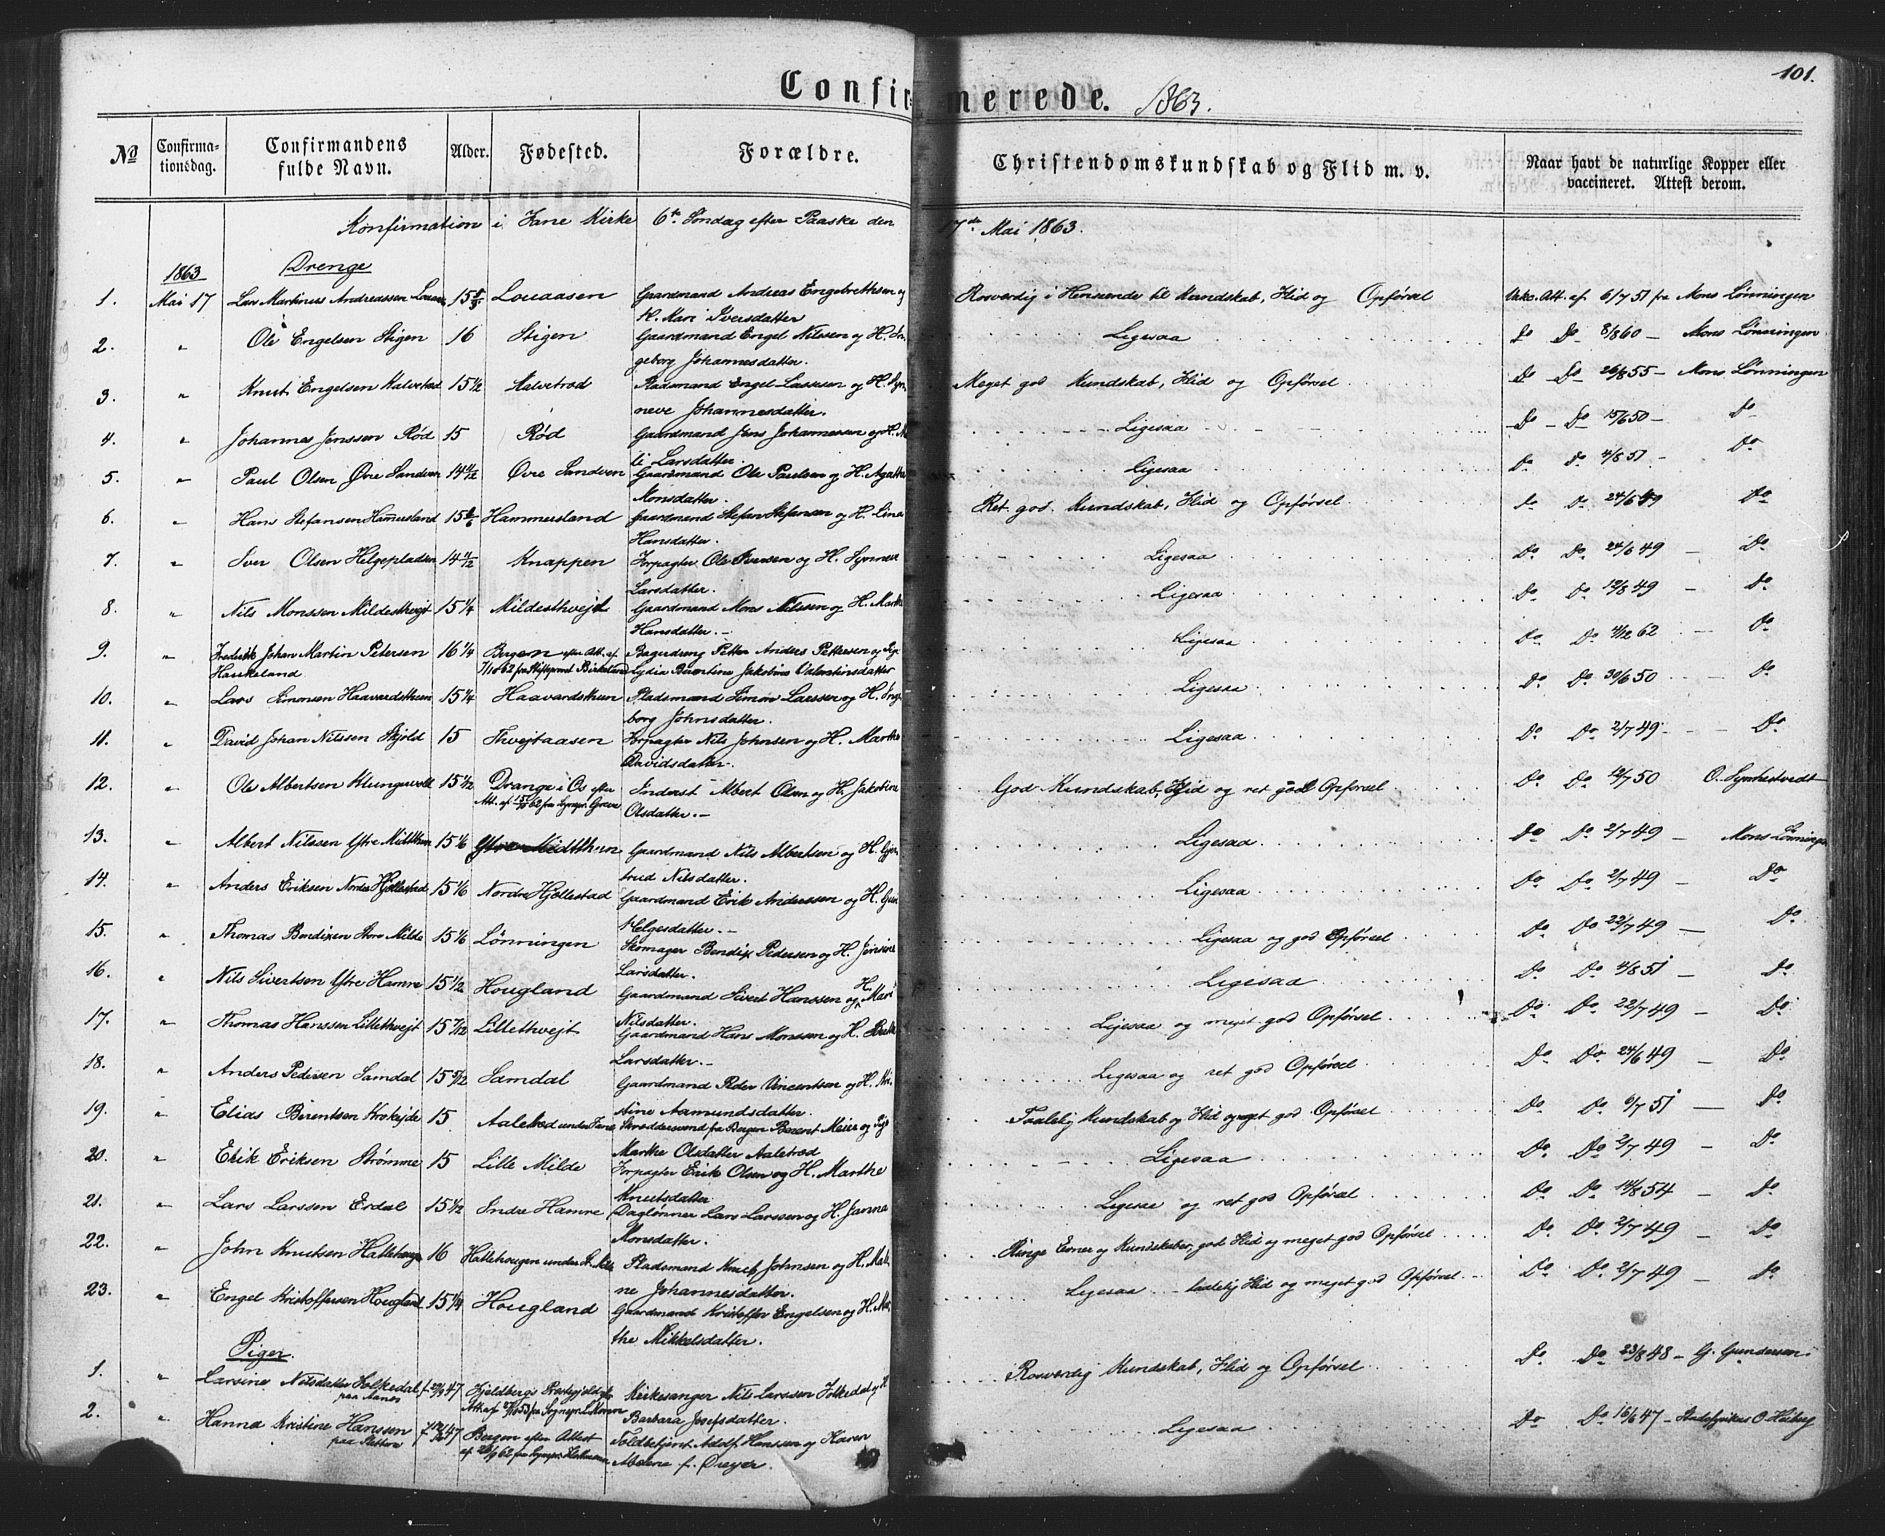 101.
Confirmerede. 1863.
No
Confirmationsdag.
Confirmandens fulde Navn.
Alder.
Fødested.
Forældre.
Christendomskundskab og Flid m. v.
Naar havt de naturlige Kopper eller vaccineret. Attest derom.
Konfirmation i Fane Kirke 6te Søndag efter Paaske den 17de Mai 1863.
1863 Drenge
1. Mai 17 Lars Martinus Andreassen Louaasen Louaasen Gaardmand Andreas Engebrethsen og Rosverdig i Henseende til Kundskab, Flid og Opførsel Vaks. Att. af 6/7 51 fra Mons Lønningen
H. Mari Iversdatter
2. " Ole Engelsen Stigen 16 Stigen Gaardmand Engel Nilssen og H. In- Ligesaa Do Do 8/8 60 – Mons Lønningen
geborg Johannesdatter.
3. " Knut Engelsen Kalvetræd 15 1/2 Kalvetræd Pladsmand Engel Larssen og H. Syn- Meget god Kundskab, Flid og Opførsel Do Do 26/8 55 – Mons Lønningen
neve Johannesdatter.
4. " Johannes Jenssen Rød 15 Rød Gaardmand Jens Johannessen og H. Ma- Ligesaa Do – Do 15/6 50 – Do
li Larsdatter.
5. " Paul Olsen Øvre Sandven 14 11/12 Øvre Sandven Gaardmand Ole Paulsen og H. Agatha Ligesaa Do Do 4/8 51 – Do
Monsdatter.
6. " Hans Stefansen Hamersland Hammersland Gaardmand Stefan Stefansen og H. Lina Ret god Kundskab, Flid og Opførsel Do Do 24/6 49 Do
Hansdatter.
7. " Iver Olsen Helgepladsen 14 11/12 Knappen Forpagter Ole Iversen og H. Synneve Ligesaa Do Do 24/6 49 – Do
Larsdatter.
8. " Nils Monssen Mildesthvejt 15 1/4 Mildesthvejt Gaardmand Mons Nilssen og H. Martha Ligesaa Do Do 12/8 49 Do
Hansdatter. –
9. " Frederik Johan Martin Petersen 16 1/4 Bergen efter Att. af Petter Anders Pettersen og Pige Ligesaa Do Do 4/12 62 – Do
Haukeland 7/10 62 fra Stiftsprovst Birkeland Lydia Jakobine Valentinsdatter
10. " Lars Simonsen Haavardsthun 15 1/4 Haavardsthun Pladsmand Simon Larssen og H. Inge- Ligesaa Do Do 30/6 50 Do
borg Johnsdatter.
11. " David Johan Nilssen Skjold 15 Thvejtaasen Forpagter Nils Johnsen og H. Martha Ligesaa Do Do 2/7 49 Do
Davidsdatter.
12. " Ole Albertsen Klungervold 15 1/2 Drange i Os efter Inderst Albert Olsen og H. Jakobine God Kundskab, Flid og ret god Opførsel Do Do 12/7 50 O. Symhestvedt
Olsdatter. –
13. " Albert Nilssen Ytre Midtthun 15 1/6 Ytre Midtthun Gaardmand Nils Albertsen og H. Gjer- Ligesaa Do Do 2/7 49 – Mons Lønningen
trud Nilsdatter.
14. " Anders Eriksen Nordre Hjellestad 15 1/6 Nordre Hjellestad Gaardmand Erik Anderssen og H. Guri Ligesaa Do Do 2/7 49 – Do
Helgesdatter. –
15. " Thomas Bendixen Store Milde 15 1/6 Lønningen Skomager Bendix Pedersen og H. Jensine Ligesaa og god Opførsel Do Do 22/7 49 – Do
Larsdatter.
16. " Nils Sivertsen Ytre Hamre 15 1/2 Hougland Gaardmand Sivert Hanssen og H. Mari Ligesaa Do Do 4/8 51 – Do
Nilsdatter.
17. " Thomas Hanssen Lillethvejt 15 7/12 Lillethvejt Gaardmand Hans Monssen og H. Ligesaa og meget god Opførsel Do Do 22/7 49 – Do
Larsdatter. –
18. " Anders Pedersen Samdal 15 5/12 Samdal Gaardmand Peder Vincentsen og H. Kri- Ligesaa og ret god Opførsel Do Do 24/6 49 – Do
stine Aamundsdatter.
19. " Elias Berentsen Krokejde 15. Aaletræd under Fane Skræddersvend fra Bergen Berent Meier og Pige Taalelig Kundskab og Flid og meget god Opførsel Do Do 6/7 51 – Do
Marthe Olsdatter Aaletræd
20. " Erik Eriksen Strømme 15 Lille Milde Forpagter Erik Olsen og H. Marthe Ligesaa Do Do 2/7 49 – Do
Knutsdatter
21. " Lars Larssen Erdal 15 1/2 Indre Hamre Daglønner Lars Larssen og H. Janna Ligesaa og ret god Opførsel Do Do 14/8 54 – Do
Monsdatter.
22. " John Knutsen Hattehougen 16 Hattehougen under Pladsmand Knut Johnsen og H. Mal- Ringe Evner og Kundskaber, god Flid og meget god Opførsel Do Do 2/7 49 – Do
ne Johannesdatter.
23. " Engel Kristoffersen Hougland 15 1/4 Hougland Gaardmand Kristoffer Engelsen og H. Mar- Ligesaa – ladelig Flid og meget god Opførsel – Do Do 2/7 49 – Do
the Mikkelsdatter.
Piger.
1. " Larsine Nilsdatter Folkedal Hjeldbergs Præstegjeld Kirkesanger Nils Larssen Folkedal og H. Rosverdig Kundskab, Flid og Opførsel Do Do 23/8 48 – G. Gundersen
paa Fanes Barbara Josefsdatter.
2. " Hanna Kristine Hanssen Bergen efter Attest Toldbetjent Adolf Hanssen og Karen Ligesaa Do Do 16/6 47 – O Heiberg
Abdene f. Dreyer.